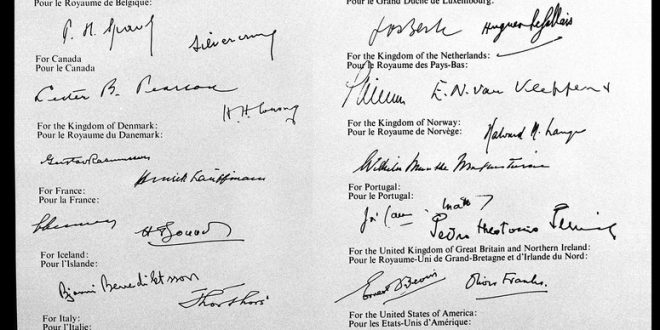 Pour le Royaume de Belgique:
P. H. Spaak
Silvercruys
For Canada
Pour le Canada
Lester B. Pearson
H. H. Wrong
For the Kingdom of Denmark:
Pour le Royaume du Danemark:
Gustav Rasmussen
Henrik Kauffmann
For France:
Pour la France:
Schuman
H Bonnet
For Iceland:
Pour l'Islande:
Bjarni Benediktsson
Thor Thors
For Italy:
Pour l'Italie:
Pour le Grand Duché de Luxembourg:
Jos Bech
Hugues Le Gallais
For the Kingdom of the Netherlands:
Pour le Royaume des Pays-Bas:
E. N. van Kleffens
For the Kingdom of Norway:
Pour le Royaume de Norvège:
Halvard M. Lange
Wilhelm Munthe Morgenstierne
For Portugal:
Pour le Portugal:
Pedro Theotonio Pereira
For the United Kingdom of Great Britain and Northern Ireland:
Pour le Royaume-Uni de Grand-Bretagne et d'Irlande du Nord:
Ernest Bevin
Oliver Franks.
For the United States of America:
Pour les Etats-Unis d'Amérique: